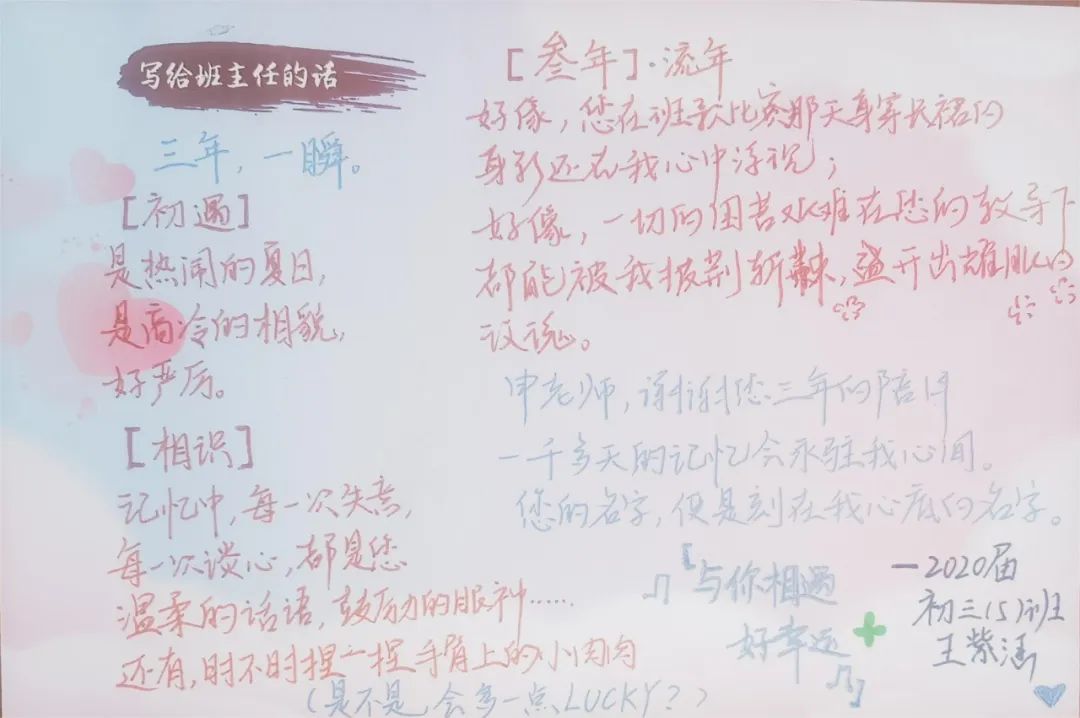 写给班主任的话
三年，一瞬。
［初遇］
是热闹的夏日，
是高冷的相貌，
好严厉。
［相识］
记忆中，每一次失意，
每一次谈心，都是您
温柔的话语，鼓励的眼神……
还有，时不时捏一捏手臂上的小肉肉
（是不是，会多一点LUCKY？）
［叁年］·流年
好像，您在班歌比赛那天身穿长裙的
身影还在我心中浮现；
好像，一切的困苦艰难在您的教导下
都能被我披荆斩棘，盛开出耀眼的
设说。
申老师，谢谢您三年的陪伴
一千多天的记忆会永驻我心间。
您的名字，便是刻在我心底的名字。
『与你相遇
好幸运』
—2020届
初三(5)班
王紫涵